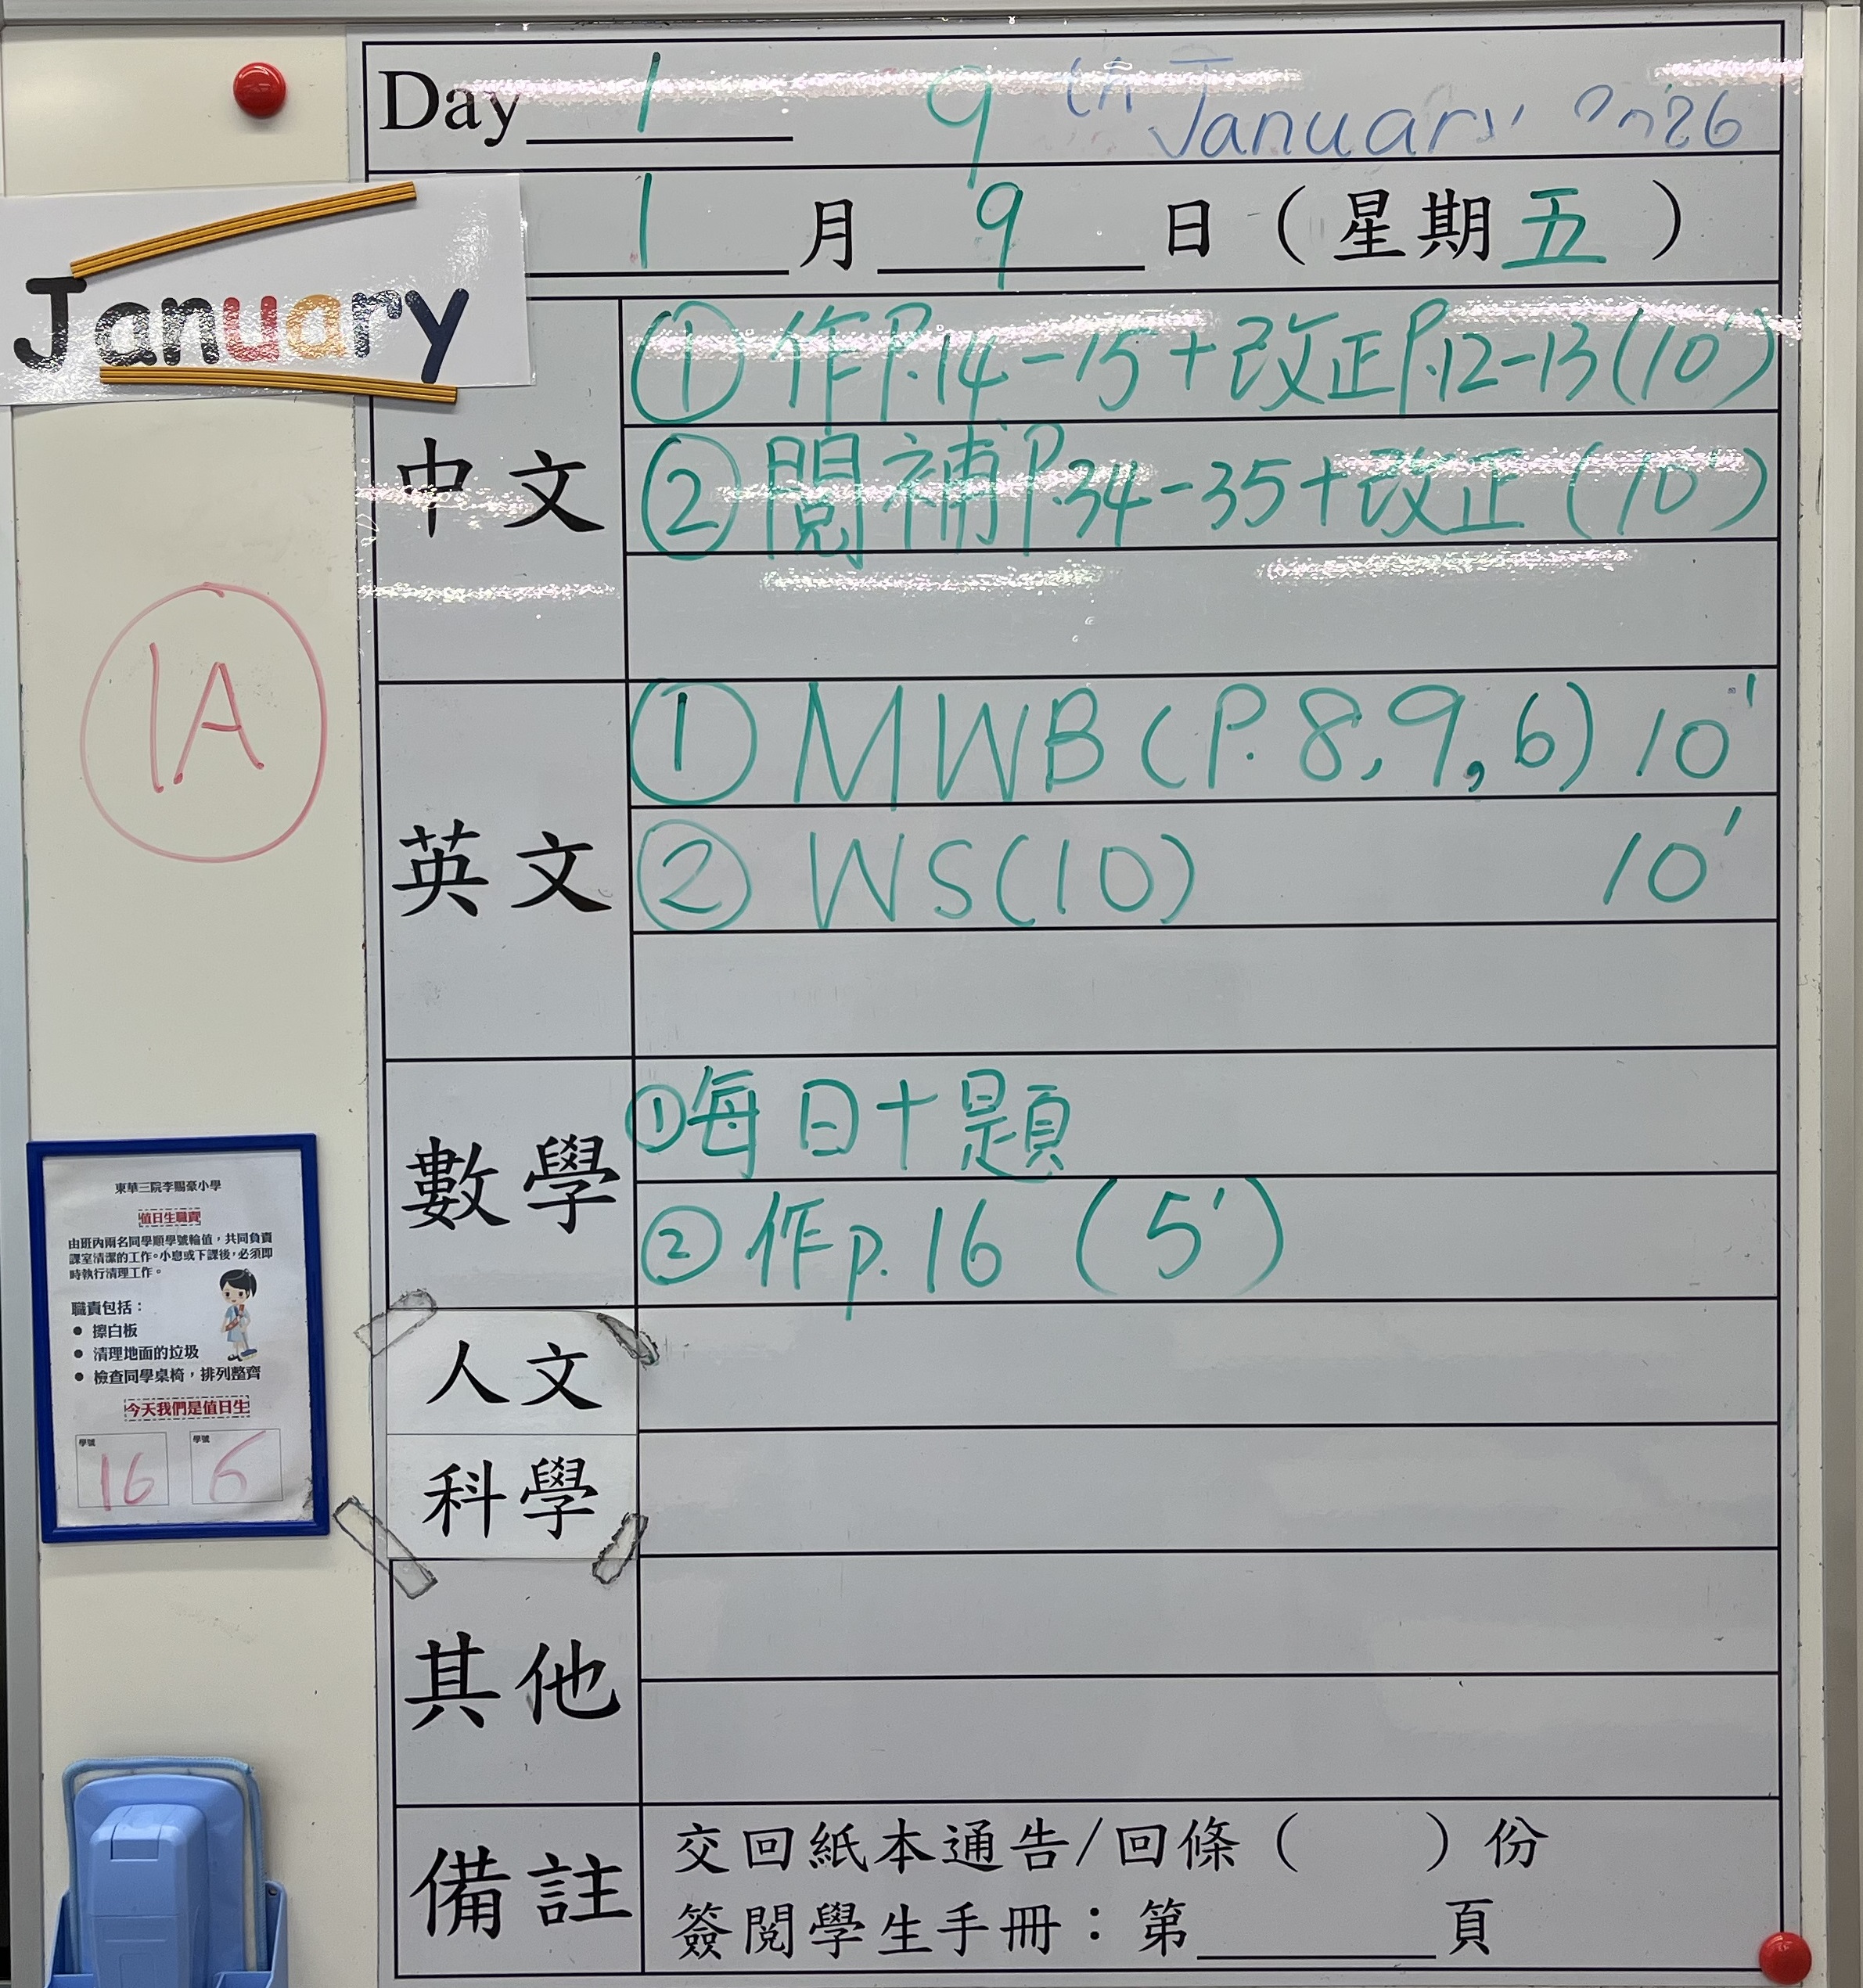 Day 1 9th January 2026
January
1月9日（星期五）
1A
中文
① 作P.14-15+改正P.12-13(10')
② 閱補P.34-35+改正(10')
英文
① MWB(P.8,9,6) 10'
② WS(10) 10'
數學
①每日十題
②作p.16 (5')
人文
科學
其他
備註
交回紙本通告/回條（ ）份
簽閱學生手冊：第____頁
東華三院李賜豪小學
值日生職責
由班內兩名同學順學號輪值，共同負責
課室清潔的工作。小息或下課後，必須即
時執行清理工作。
職責包括：
● 擦白板
● 清理地面的垃圾
● 檢查同學桌椅，排列整齊
今天我們是值日生
學號 學號
16 6